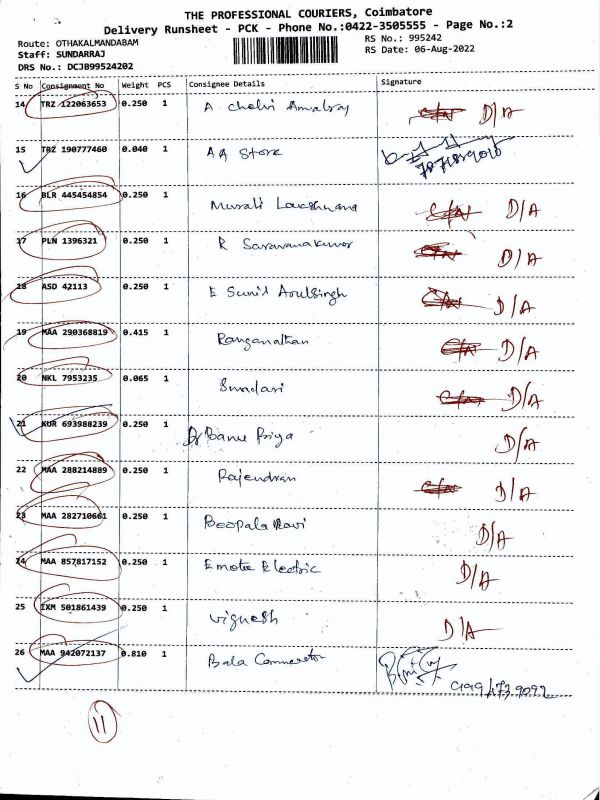 THE PROFESSIONAL COURIERS, Coimbatore
Delivery Runsheet - PCK - Phone No.:0422-3505555 - Page No.:2
Route: OTHAKALMANDABAM
RS No.: 995242
Staff: SUNDARRAJ
RS Date: 06-Aug-2022
DRS No.: DCJB99524202
S No Consignment No Weight PCS Consignee Details Signature
14 TRZ 122063653 0.250 1 A Chelvi Amalraj D/A
15 TRZ 190777460 0.040 1 AA Store
16 BLR 445454854 0.250 1 Murali Lakshmana D/A
17 PLN 1396321 0.250 1 R Saravanakumar D/A
18 ASD 42113 0.250 1 E Sunil Arulsingh D/A
19 MAA 290368819 0.415 1 Ranganathan D/A
20 NKL 7953235 0.065 1 Sundari D/A
21 KUR 693988239 0.250 1 Dr Banu Priya D/A
22 MAA 288214889 0.250 1 Rajendran D/A
23 MAA 282710661 0.250 1 Boopala Ravi D/A
24 MAA 857817152 0.250 1 Emote Electric D/A
25 IXM 501861439 0.250 1 Vignesh D/A
26 MAA 942072137 0.810 1 Bala
11